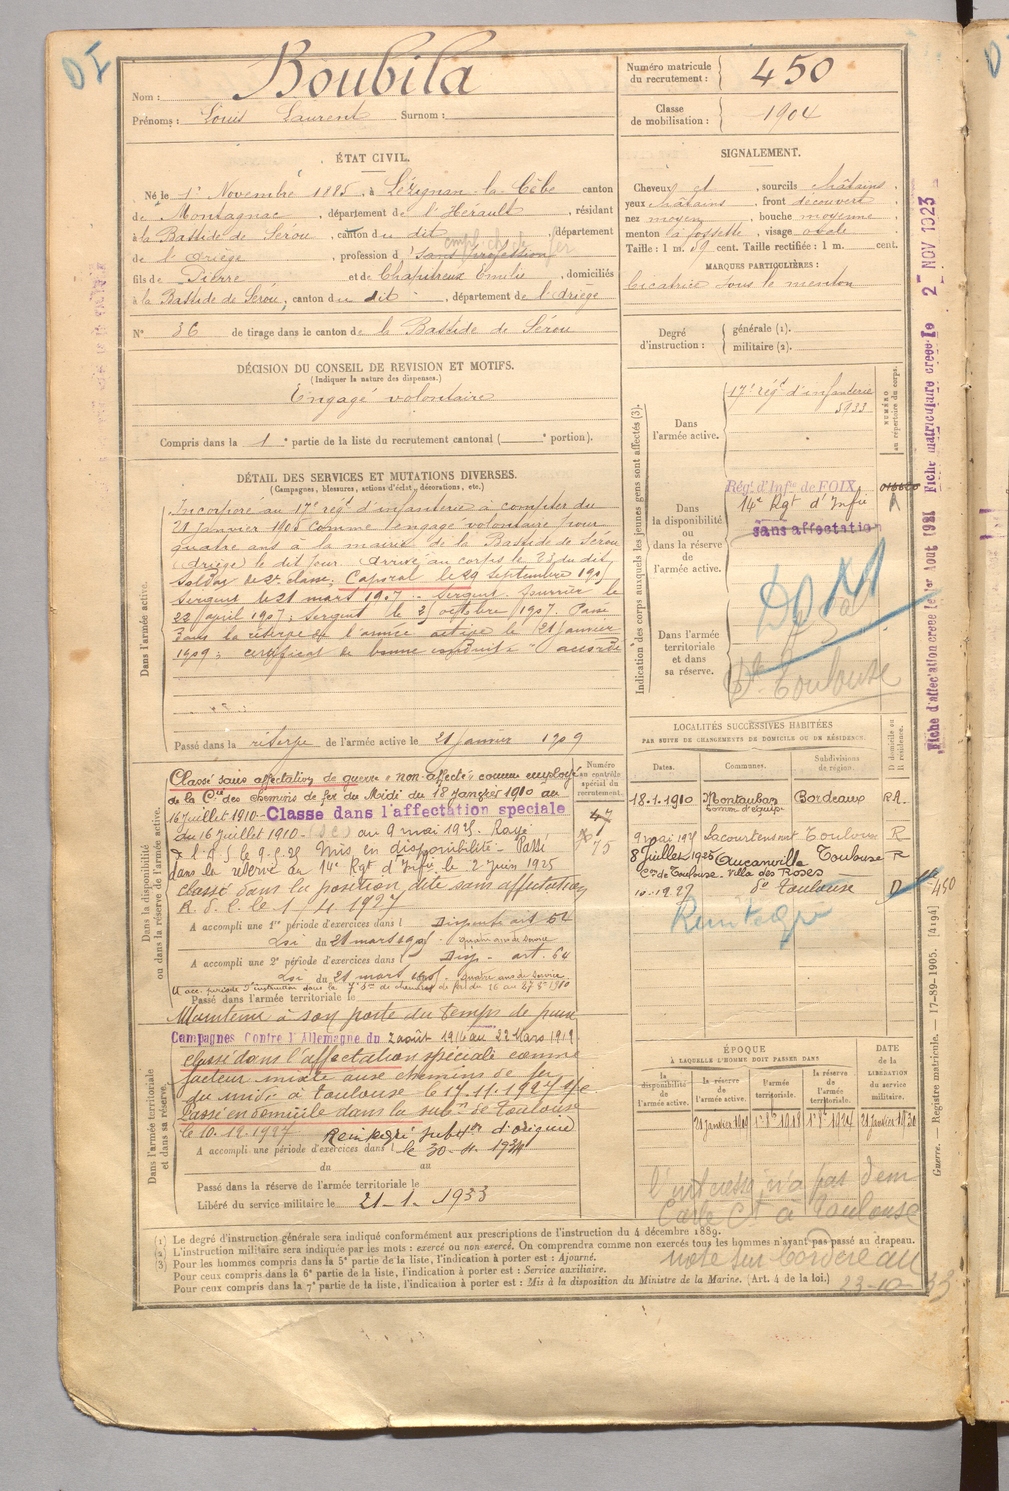 Nom : Boubila
Prénoms : Louis Laurent Surnom :
Numéro matricule du recrutement : 450
Classe de mobilisation : 1904
ÉTAT CIVIL.
Né le 1er Novembre 1885, à Lézignan-la-Cèbe canton
de Montagnac, département de l'Hérault, résidant
à la Bastide de Sérou, canton du dit, département
de l'Ariège, profession d sans profession
fils de Pierre et de Chapitreux Emilie, domiciliés
à la Bastide de Sérou, canton du dit, département de l'Ariège
N° 36 de tirage dans le canton de la Bastide de Sérou
SIGNALEMENT.
Cheveux et, sourcils châtains,
yeux châtains, front découvert
nez moyen, bouche moyenne
menton à fossette, visage ovale
Taille : 1 m. 59 cent. Taille rectifiée : 1 m. cent.
MARQUES PARTICULIÈRES :
Cicatrice sous le menton
Degré d'instruction : générale (1).
militaire (2).
DÉCISION DU CONSEIL DE REVISION ET MOTIFS.
(Indiquer la nature des dispenses.)
Engagé volontaire
Compris dans la 1e partie de la liste du recrutement cantonal ( e portion).
DÉTAIL DES SERVICES ET MUTATIONS DIVERSES.
(Campagnes, blessures, actions d'éclat, décorations, etc.)
Dans l'armée active.
Incorporé au 17e régt d'infanterie à compter du
21 Janvier 1905 comme engagé volontaire pour
quatre ans à la mairie de la Bastide de Sérou
(Ariège) le dit jour. Arrivé au corps le 23 du dit,
soldat de 2e classe; Caporal le 29 Septembre 190
Sergent le 21 mars 1907. Sergent fourrier le
22 avril 1907; Sergent le 3 octobre 1907. Passé
dans la réserve de l'armée active le 21 Janvier
1909; certificat de bonne conduite accordé
Passé dans la réserve de l'armée active le 21 Janvier 1909
Indication des corps auxquels les jeunes gens sont affectés (3).
NUMÉRO au répertoire du corps.
Dans l'armée active.
17e régt d'infanterie
5933
Dans la disponibilité ou dans la réserve de l'armée active.
Régt d'Infie de FOIX
14e Rgt d'Infie
A
sans affectation
Dans l'armée territoriale et dans sa réserve.
Toulouse
Fiche d'affectation créée le 1er Aout 1931 Fiche matriculaire créée le 2 NOV 1923
Dans la disponibilité ou dans la réserve de l'armée active.
Numéro au contrôle spécial du recrutement.
Classé sans affectation de guerre "non affecté" comme employé
de la Cie des chemins de fer du Midi du 18 Janvier 1910 au
16 juillet 1910.- Classe dans l'affectation speciale
du 16 Juillet 1910 - au 9 mai 1925. Rayé
de l'A S le 9.5.25 Mis en disponibilité - Passé
dans la réserve au 14e Rgt d'Infie le 2 Juin 1925
classé dans la position dite sans affectation
le 1 4 1927
A accompli une 1re période d'exercices dans l Dispensé art. 62
Loi du 21 mars 1905. quatre ans de service
A accompli une 2e période d'exercices dans l Disp. art. 64
Loi du 21 mars 1905. quatre ans de service
Passé dans l'armée territoriale le
Maintenu à son poste du temps de paix
LOCALITÉS SUCCESSIVES HABITÉES
PAR SUITE DE CHANGEMENTS DE DOMICILE OU DE RÉSIDENCE.
Dates. Communes. Subdivisions de région. D domicile ou R résidence.
18.1.1910 Montauban Bordeaux RA
9 mai 1925 Lacourtensourt Toulouse R
8 Juillet 1925 Aucamville Toulouse R
Cne de Toulouse. Villa des Roses
10.12.27 do Toulouse D 450
Réintégré
Dans l'armée territoriale et dans sa réserve.
Campagnes Contre l'Allemagne du 2 août 1914 au 22 Mars 1919
classé dans l'affectation spéciale comme
facteur mixte aux chemins de fer
du midi à Toulouse le 17.11.1927
Passé en domicile dans la subon de Toulouse
le 10.12.1927 Réintégré subon d'origine
A accompli une période d'exercices dans l le 30-4-1934
du au
Passé dans la réserve de l'armée territoriale le
Libéré du service militaire le 21-1-1933
ÉPOQUE
À LAQUELLE L'HOMME DOIT PASSER DANS
la disponibilité de l'armée active. la réserve de l'armée active. l'armée territoriale. la réserve de l'armée territoriale.
DATE de la LIBÉRATION du service militaire.
21 Janvier 1909 1er 8bre 1918 1er 8bre 1924 21 Janvier 1930
l'intéressé n'a pas d'em
Carte Ct à Toulouse
note sur bordereau
23-10-33
(1) Le degré d'instruction générale sera indiqué conformément aux prescriptions de l'instruction du 4 décembre 1889.
(2) L'instruction militaire sera indiquée par les mots : exercé ou non exercé. On comprendra comme non exercés tous les hommes n'ayant pas passé au drapeau.
(3) Pour les hommes compris dans la 5e partie de la liste, l'indication à porter est : Ajourné.
Pour ceux compris dans la 6e partie de la liste, l'indication à porter est : Service auxiliaire.
Pour ceux compris dans la 7e partie de la liste, l'indication à porter est : Mis à la disposition du Ministre de la Marine. (Art. 4 de la loi.)
Guerre. — Registre matricule. — 17-89-1905. [4194]